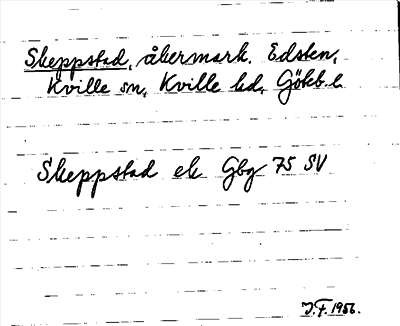 Skeppstad, åkermark. Edsten,
Kville sn, Kville hd, Göteb. l.
Skeppstad ek Gbg 75 SV
J.F. 1956.